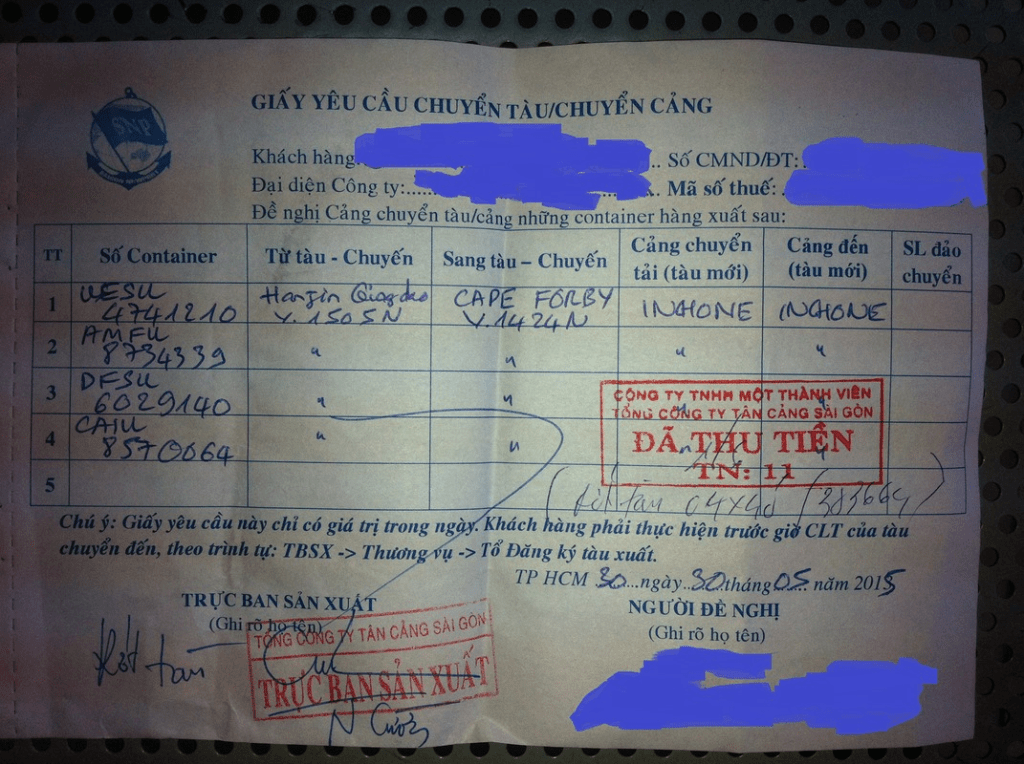 SNP
GIẤY YÊU CẦU CHUYỂN TÀU/CHUYỂN CẢNG
Khách hàng: Số CMND/ĐT:
Đại diện Công ty: Mã số thuế:
Đề nghị Cảng chuyển tàu/cảng những container hàng xuất sau:
TT Số Container Từ tàu - Chuyến Sang tàu – Chuyến Cảng chuyển tải (tàu mới) Cảng đến (tàu mới) SL đảo chuyển
1 UESU 4741210 Hanjin Qingdao V.1505N CAPE FORBY V.1424N INCHONE INCHONE
2 AMFU 8734339 " " " "
3 DFSU 6029140 " "
4 CAIU 8570064 " "
5
CÔNG TY TNHH MỘT THÀNH VIÊN
TỔNG CÔNG TY TÂN CẢNG SÀI GÒN
ĐÃ THU TIỀN
TN: 11
(Rớt tàu 04x40 (383664)
Chú ý: Giấy yêu cầu này chỉ có giá trị trong ngày. Khách hàng phải thực hiện trước giờ CLT của tàu
chuyển đến, theo trình tự: TBSX -> Thương vụ -> Tổ Đăng ký tàu xuất.
TP HCM 30...ngày 30 tháng 05 năm 2015
TRỰC BAN SẢN XUẤT NGƯỜI ĐỀ NGHỊ
(Ghi rõ họ tên) (Ghi rõ họ tên)
TỔNG CÔNG TY TÂN CẢNG SÀI GÒN
Rớt tàu
TRỰC BAN SẢN XUẤT
N Cường